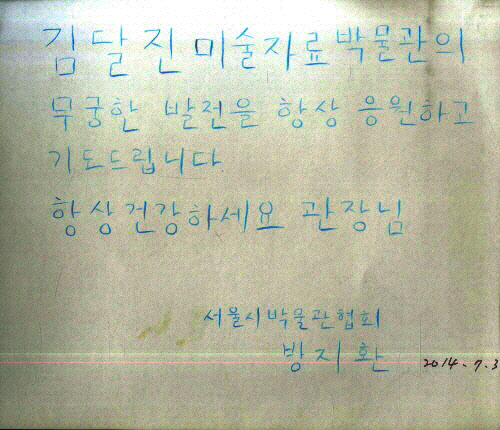 김달진미술자료박물관의
무궁한 발전을 항상 응원하고
기도드립니다
항상건강하세요 관장님
서울시박물관협회
방지환
2014. 7. 3